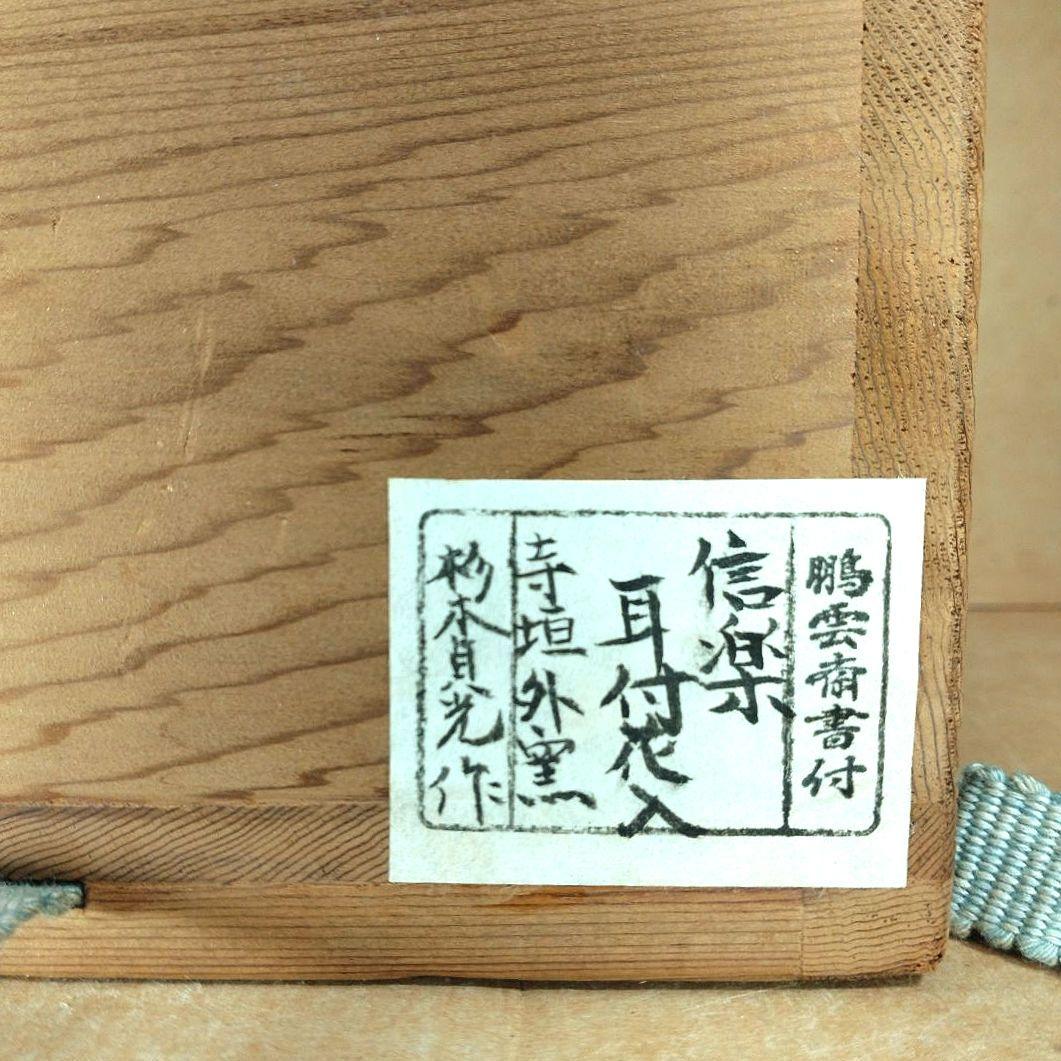 鵬雲斎書付
信楽
耳付花入
寺垣外窯
杉本貞光作